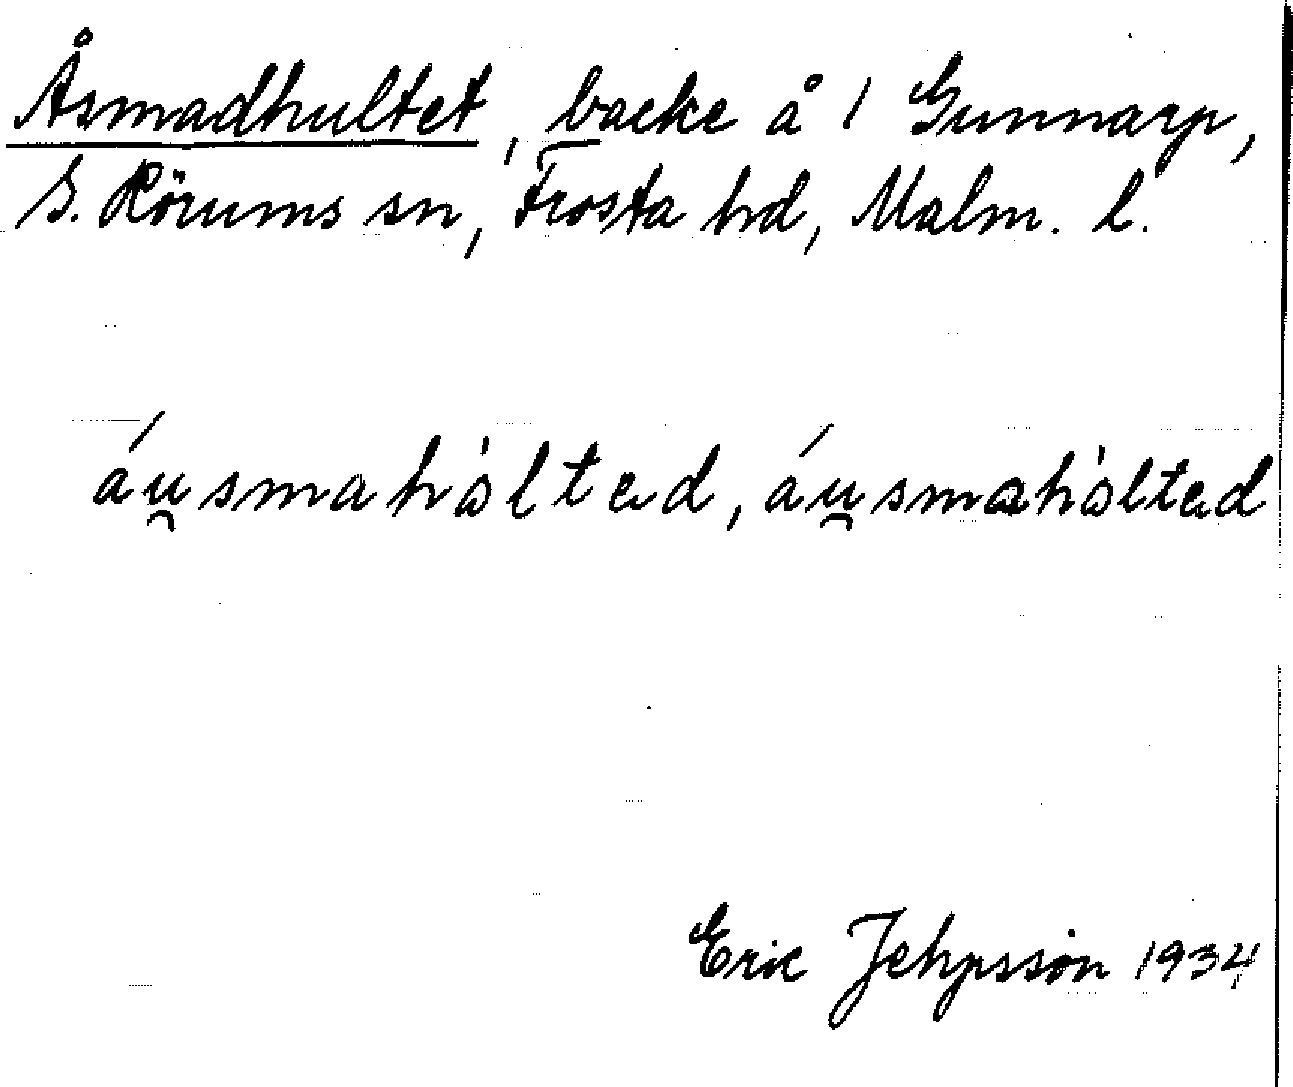 Åsmadhultet, backe å 1 Gunnarp,
S. Rörums sn, Frosta hd, Malm. l.
áu̯smahòltad, áu̯smahòltad
Eric Jehpsson 1934